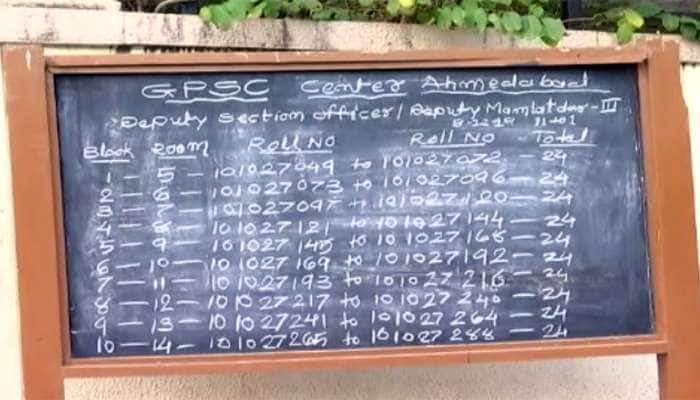 GPSC Center Ahmedabad
Deputy Section Officer / Deputy Mamlatdar - III
Block Room Roll No Roll No Total
1 - 5 - 101027049 to 101027072 - 24
2 - 6 - 101027073 to 101027096 - 24
3 - 7 - 101027097 to 101027120 - 24
4 - 8 - 101027121 to 101027144 - 24
5 - 9 - 101027145 to 101027168 - 24
6 - 10 - 101027169 to 101027192 - 24
7 - 11 - 101027193 to 101027216 - 24
8 - 12 - 101027217 to 101027240 - 24
9 - 13 - 101027241 to 101027264 - 24
10 - 14 - 101027265 to 101027288 - 24